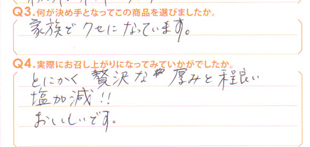 Q3.何が決め手となってこの商品を選びましたか。
家族でクセになっています。
Q4.実際にお召し上がりになってみていかがでしたか。
とにかく贅沢な厚みと程良い
塩加減!!
おいしいです。